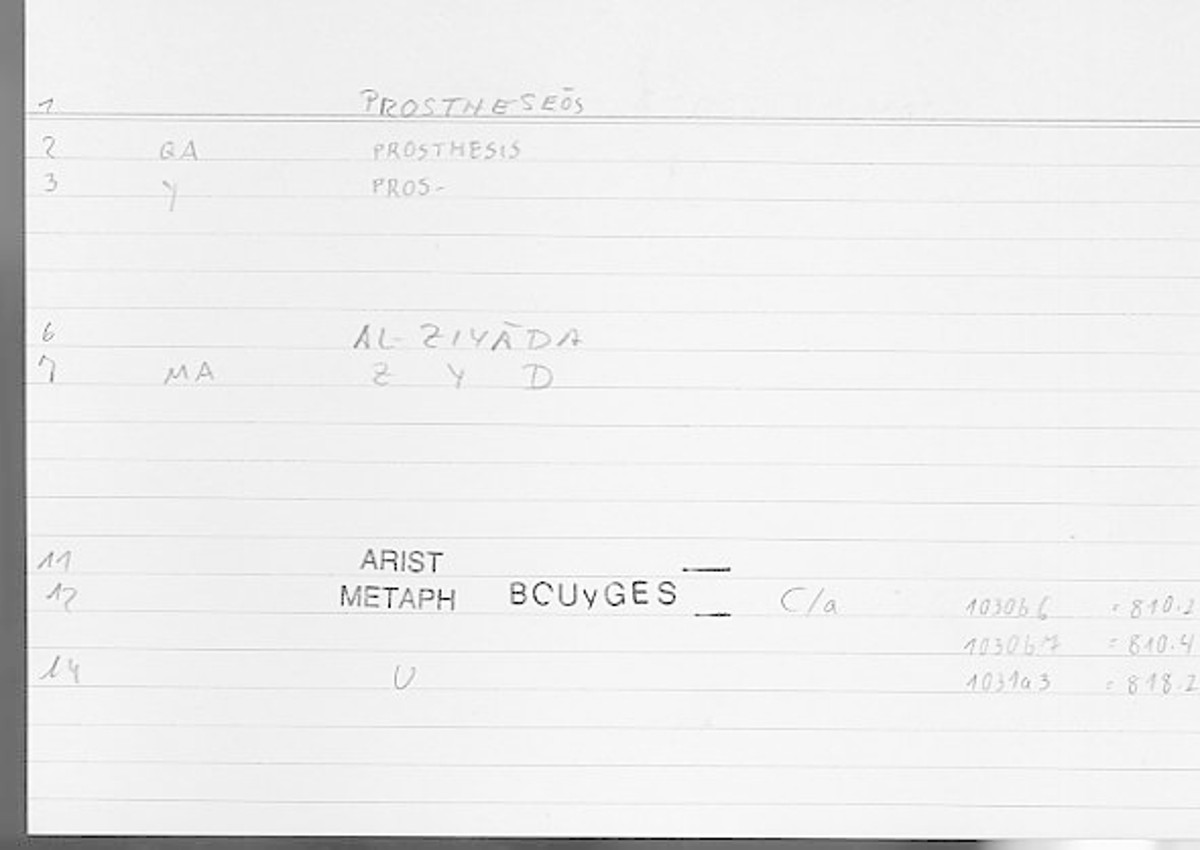 1 PROSTHESEŌS
2 GA PROSTHESIS
3 Y PROS-
6 AL-ZIYĀDA
7 MA Z Y D
11 ARIST
12 METAPH BCUyGES C/a 1030b6 = 810.2
1030b7 = 810.4
14 U 1031a3 = 818.2